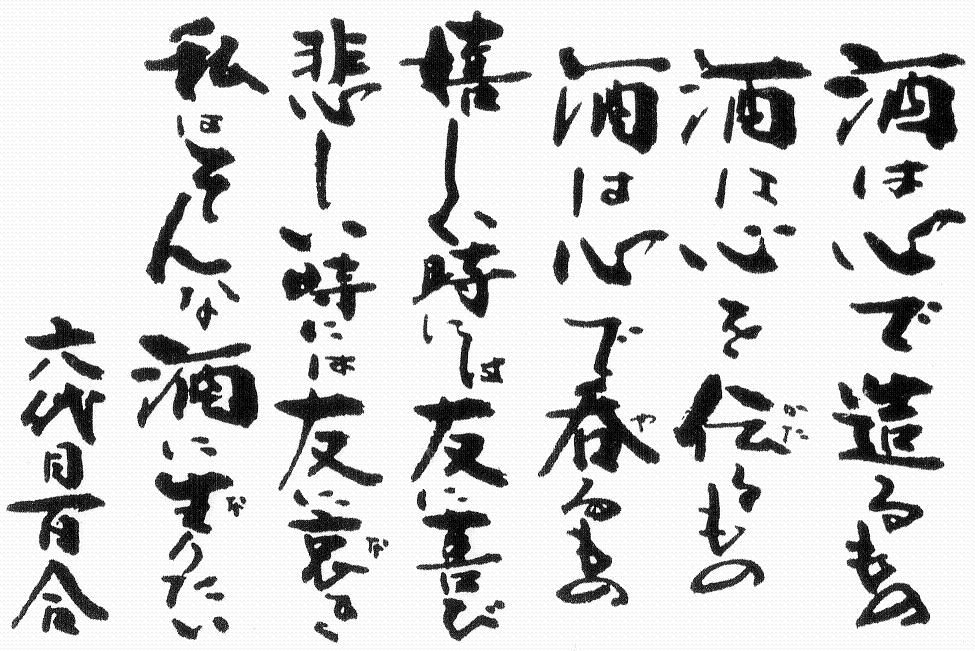 酒は心で造るもの
酒に心を伝るもの
かた
酒は心で呑るもの
や
嬉しい時には友に喜び
悲しい時には友に哀き
な
私はそんな酒に生りたい
な
六代目百合